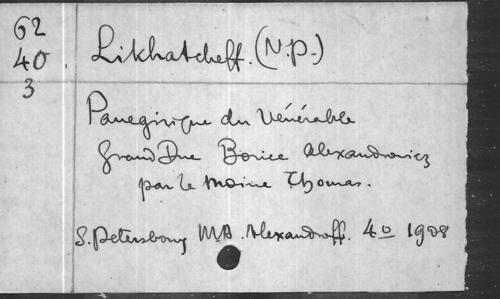 62
40
3
Likhatcheff. (N.P.)
Panegirique du Vénérable
Grand Duc Borice Alexandrovicz
par le Moine Thomas.
S. Petersbourg M.A. Alexandroff. 4º 1908